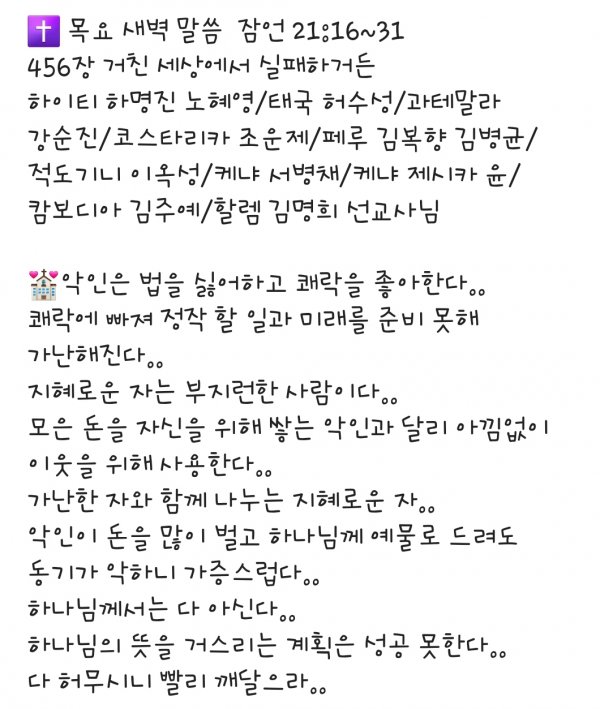 ✝ 목요 새벽 말씀 잠언 21:16~31
456장 거친 세상에서 실패하거든
하이티 하명진 노혜영/태국 허수성/과테말라
강순진/코스타리카 조운제/페루 김복향 김병균/
적도기니 이옥성/케냐 서병채/케냐 제시카 윤/
캄보디아 김주예/할렘 김명희 선교사님
💒악인은 법을 싫어하고 쾌락을 좋아한다..
쾌락에 빠져 정작 할 일과 미래를 준비 못해
가난해진다..
지혜로운 자는 부지런한 사람이다..
모은 돈을 자신을 위해 쌓는 악인과 달리 아낌없이
이웃을 위해 사용한다..
가난한 자와 함께 나누는 지혜로운 자..
악인이 돈을 많이 벌고 하나님께 예물로 드려도
동기가 악하니 가증스럽다..
하나님께서는 다 아신다..
하나님의 뜻을 거스리는 계획은 성공 못한다..
다 허무시니 빨리 깨달으라..